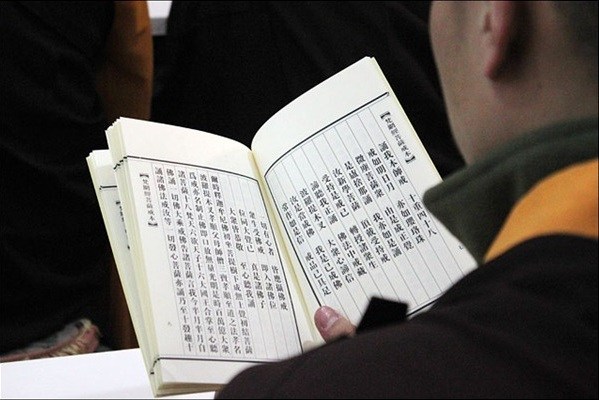 【梵網經菩薩戒本】
誦我本師戒　十重四十八
戒如明日月　亦如瓔珞珠
微塵菩薩眾　由是成正覺
是盧舍那誦　我亦如是誦
汝新學菩薩　頂戴受持戒
受持是戒已　轉授諸眾生
諦聽我正誦　佛法中戒藏
波羅提木叉　大眾心諦信
汝是當成佛　我是已成佛
常作如是信　戒品已具足
一切有心者　皆應攝佛戒
眾生受佛戒　即入諸佛位
位同大覺已　真是諸佛子
大眾皆恭敬　至心聽我誦
爾時釋迦牟尼佛初坐菩提樹下成無上覺初結菩薩
波羅提木叉孝順父母師僧三寶孝順至道之法孝名
為戒亦名制止佛即口放無量光明是時百萬億大眾
諸菩薩十八梵天六欲天子十六大國王合掌至心聽
佛誦一切諸佛大乘戒佛告諸菩薩言我今半月半月自
誦諸佛法戒汝等一切發心菩薩亦誦乃至十發趣十
【梵網經菩薩戒本】